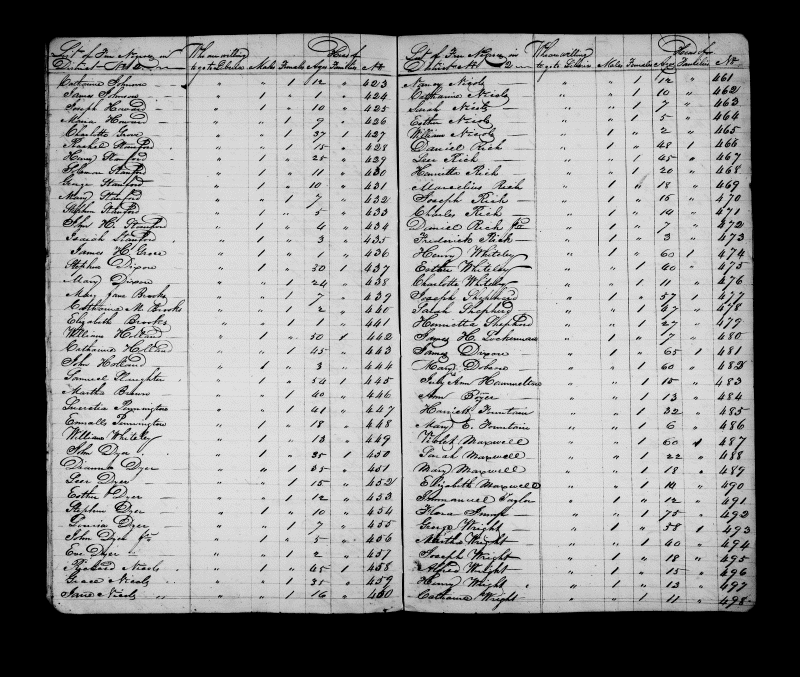 List of Free Negroes in District No 2 Those willing to go to Liberia Males Females Ages Head of Families No
Catharine Johnson " " 1 12 " 423
James Johnson " 1 " 1 " 424
Joseph Howard " 1 " 10 " 425
Howard " " 1 9 " 426
Charlotte Grove " " 1 37 1 427
Rachel Stanford " " 1 15 " 428
Henry Stanford " 1 " 25 " 429
Solomon Stanford " 1 " 11 " 430
George Stanford " 1 " 10 " 431
Mary Stanford " " 1 7 " 432
Stephen Stanford " 1 " 5 " 433
John H. Stanford " 1 " 4 " 434
Stanford " 1 " 3 " 435
James H. " 1 " " 436
Stephen Dixon " 1 " 30 1 437
Mary Dixon " " 1 24 " 438
Mary Jane Brooks " " 1 7 " 439
Catharine M. Brooks " " 1 2 " 440
Elizabeth Brooks " " 1 1 " 441
William Holland " 1 " 50 1 442
Catharine Holland " " 1 45 " 443
John Holland " 1 " 3 " 444
Samuel Slaughter " 1 " 54 1 445
Martha Brown " " 1 40 " 446
Lucretia Pennington " " 1 41 " 447
Ennalls Pennington " 1 " 18 " 448
William Whiteley " 1 " 13 " 449
John Dyer " 1 " 35 1 450
Dianna Dyer " " 1 35 " 451
Dyer " 1 15 " 452
Esther Dyer " " 1 12 " 453
Stephen Dyer " 1 " 10 " 454
Dyer " " 1 7 " 455
John Dyer Jr " 1 " 5 " 456
Eve Dyer " " 1 2 " 457
Richard Nicols " 1 " 45 1 458
Grace Nicols " " 1 35 " 459
Jane Nicols " " 1 16 " 460
List of Free Negroes in District No 2 Those willing to go to Liberia Males Females Ages Head of Families No
Nancy Nicols " " 1 12 " 461
Catharine Nicols " " 1 10 " 462
Sarah Nicols " " 1 7 " 463
Esther Nicols " " 1 5 " 464
William Nicols " 1 " 2 " 465
Daniel Rich " 1 " 48 1 466
Rich " " 1 45 " 467
Henrietta Rich " " 1 20 " 468
Rich " 1 " 18 " 469
Joseph Rich " 1 " 16 " 470
Charles Rich " 1 " 14 " 471
Daniel Rich Jr " 1 " 7 " 472
Frederick Rich " 1 " 3 " 473
Henry Whiteley " 1 " 60 1 474
Esther Whiteley " " 1 40 " 475
Charlotte Whiteley " " 1 11 " 476
Joseph Shepherd " 1 " 57 1 477
Sarah Shepherd " " 1 47 " 478
Henrietta Shepherd " " 1 27 " 479
James H. Lockerman " 1 " 17 " 480
James Dixon " 1 " 65 1 481
Mary " " 1 60 " 482
July Ann " " 1 15 " 483
Ann " " 1 13 " 484
Harriett Fountain " " 1 32 " 485
Mary E. Fountain " " 1 6 " 486
Violet Maxwell " " 1 60 1 487
Sarah Maxwell " " 1 22 " 488
Mary Maxwell " " 1 18 " 489
Elizabeth Maxwell " " 1 14 " 490
Immanuel Taylor " 1 " 12 " 491
" " 1 75 " 492
George Wright " 1 " 58 1 493
Martha Wright " " 1 40 " 494
Joseph Wright " 1 " 18 " 495
Alfred Wright " 1 " 15 " 496
Henry Wright " 1 " 13 " 497
Catharine Wright " " 1 11 " 498